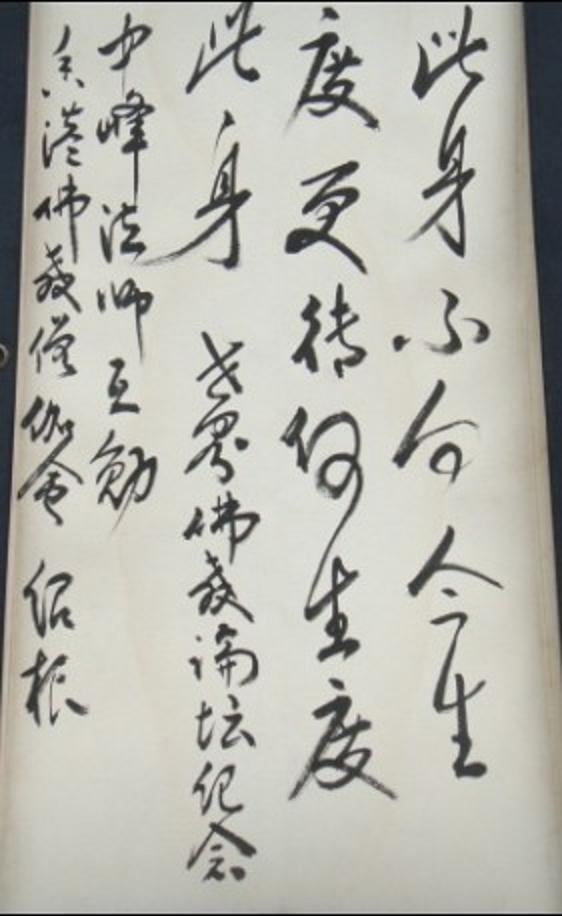 此身不向今生
度更待何生度
此身 世界佛教論坛纪念
中峰法师互勉
香港佛教僧伽会 绍根